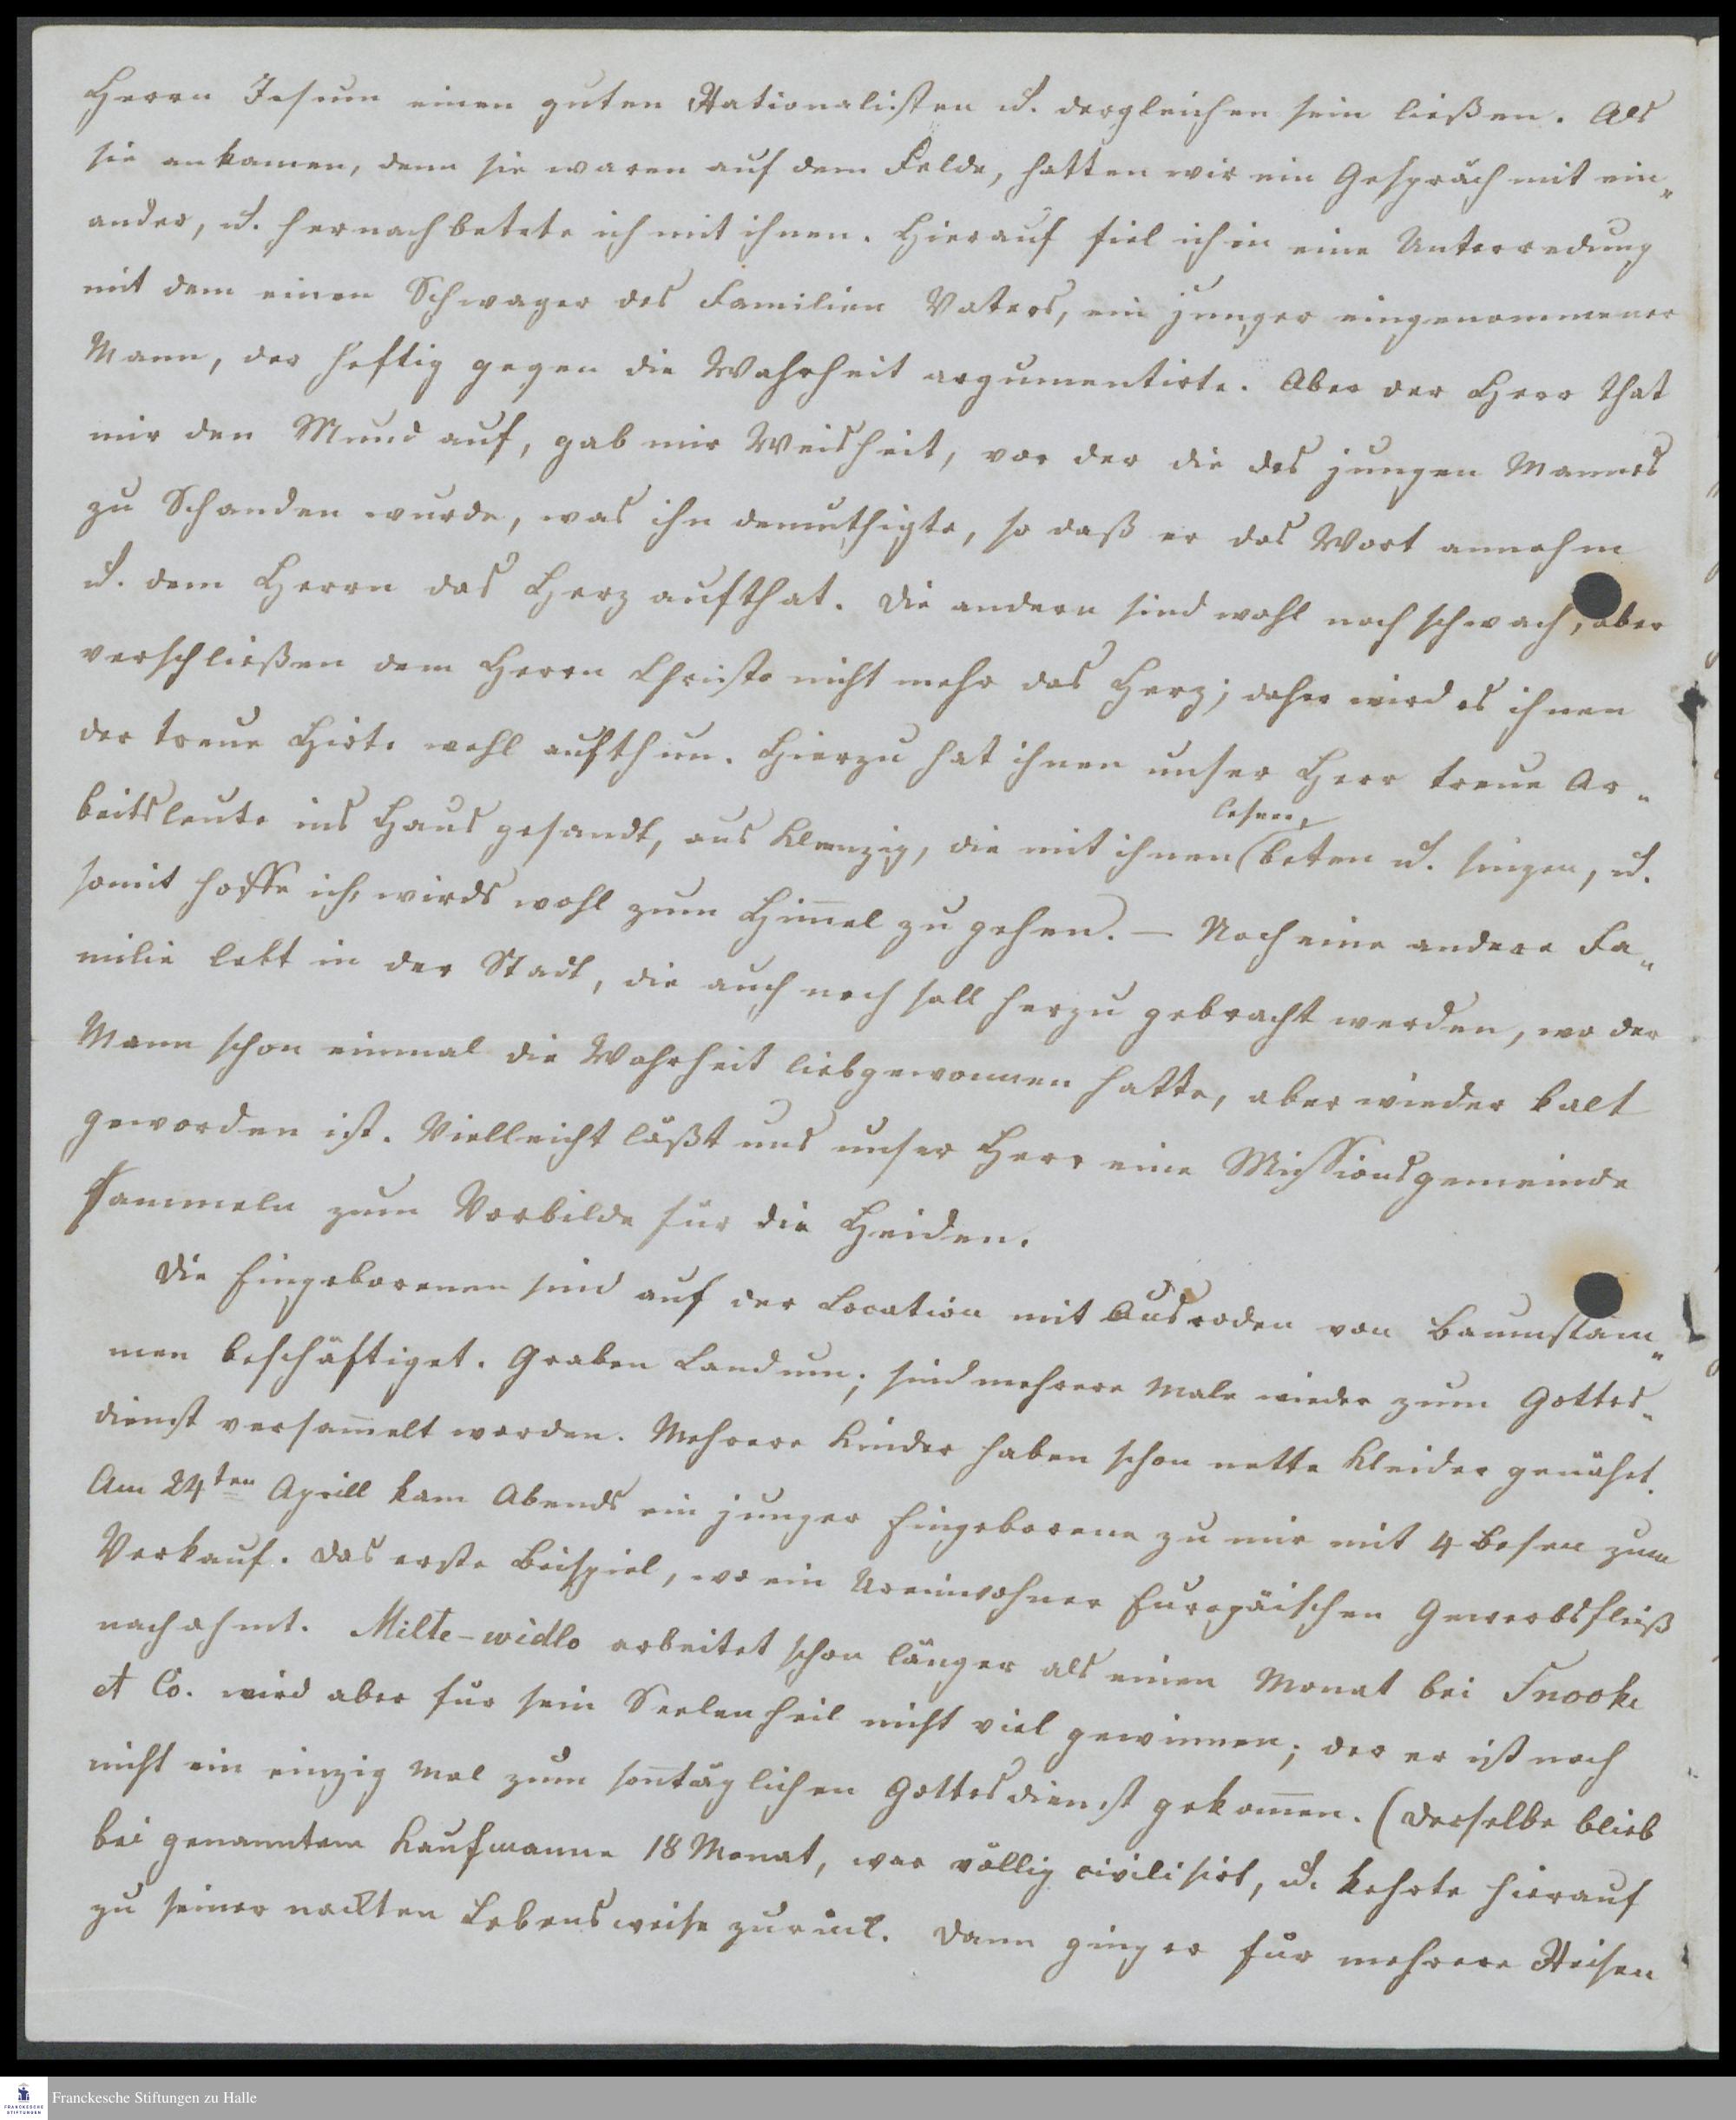 Herrn Jesum einen guten Rationalisten u. dergleichen sein ließen. Als
sie ankamen, denn sie waren auf dem Felde, hatten wir ein Gespräch mit ein„
ander, u. hernach betete ich mit ihnen. Hierauf fiel ich in eine Unterredung
mit dem einen Schwager des Familien Vaters, ein junger eingenommener
Mann, der heftig gegen die Wahrheit argumentirte. Aber der Herr that
mir den Mund auf, gab mir Weisheit, vor der die des jungen Mannes
zu Schanden wurde, was ihn demüthigte, so daß er das Wort annahm
u. dem Herrn das Herz aufthat. Die andern sind wohl noch schwach, aber
verschließen dem Herrn Christo nicht mehr das Herz; daher wird es ihnen
der treue Hirte wohl aufthun. Hierzu hat ihnen unser Herr treue Ar„
beitsleute ins Haus gesandt, aus Klemzig, die mit ihnen lesen, beten u. singen, u.
somit hoffe ich, wirds wohl zum Him̄el zu gehen. — Noch eine andere Fa„
milie lebt in der Stadt, die auch noch soll herzu gebracht werden, wo der
Mann schon einmal die Wahrheit liebgewonnen hatte, aber wieder kalt
geworden ist. Vielleicht läßt uns unser Herr eine Missionsgemeinde
sammeln zum Vorbilde für die Heiden.
Die Eingeborenen sind auf der Location mit Ausroden von Baumstäm„
men beschäftiget. Graben Land um; sind mehrere Male wieder zum Gottes„
dienst versam̄elt worden. Mehrere Kinder haben schon nette Kleider genäht.
Am 24ten Aprill kam Abends ein junger Eingeborene zu mir mit 4 Besen zum
Verkauf. Das erste Beispiel, wo ein Ureinwohner Europäischen Gewerbsfleiß
nachahmt. Milte-widlo arbeitet schon länger als einen Monat bei Snooke
et Co. wird aber für sein Seelenheil nicht viel gewinnen; der er ist noch
nicht ein einzig Mal zum son̄täglichen Gottesdienst gekom̄en. (Derselbe blieb
bei genanntem Kaufmanne 18 Monat, war völlig civilisirt, u. kehrte hierauf
zu seiner nackten Lebensweise zurück. Dann ging er für mehrere Reisen
Franckesche Stiftungen zu Halle
FRANCKESCHE
STIFTUNGEN